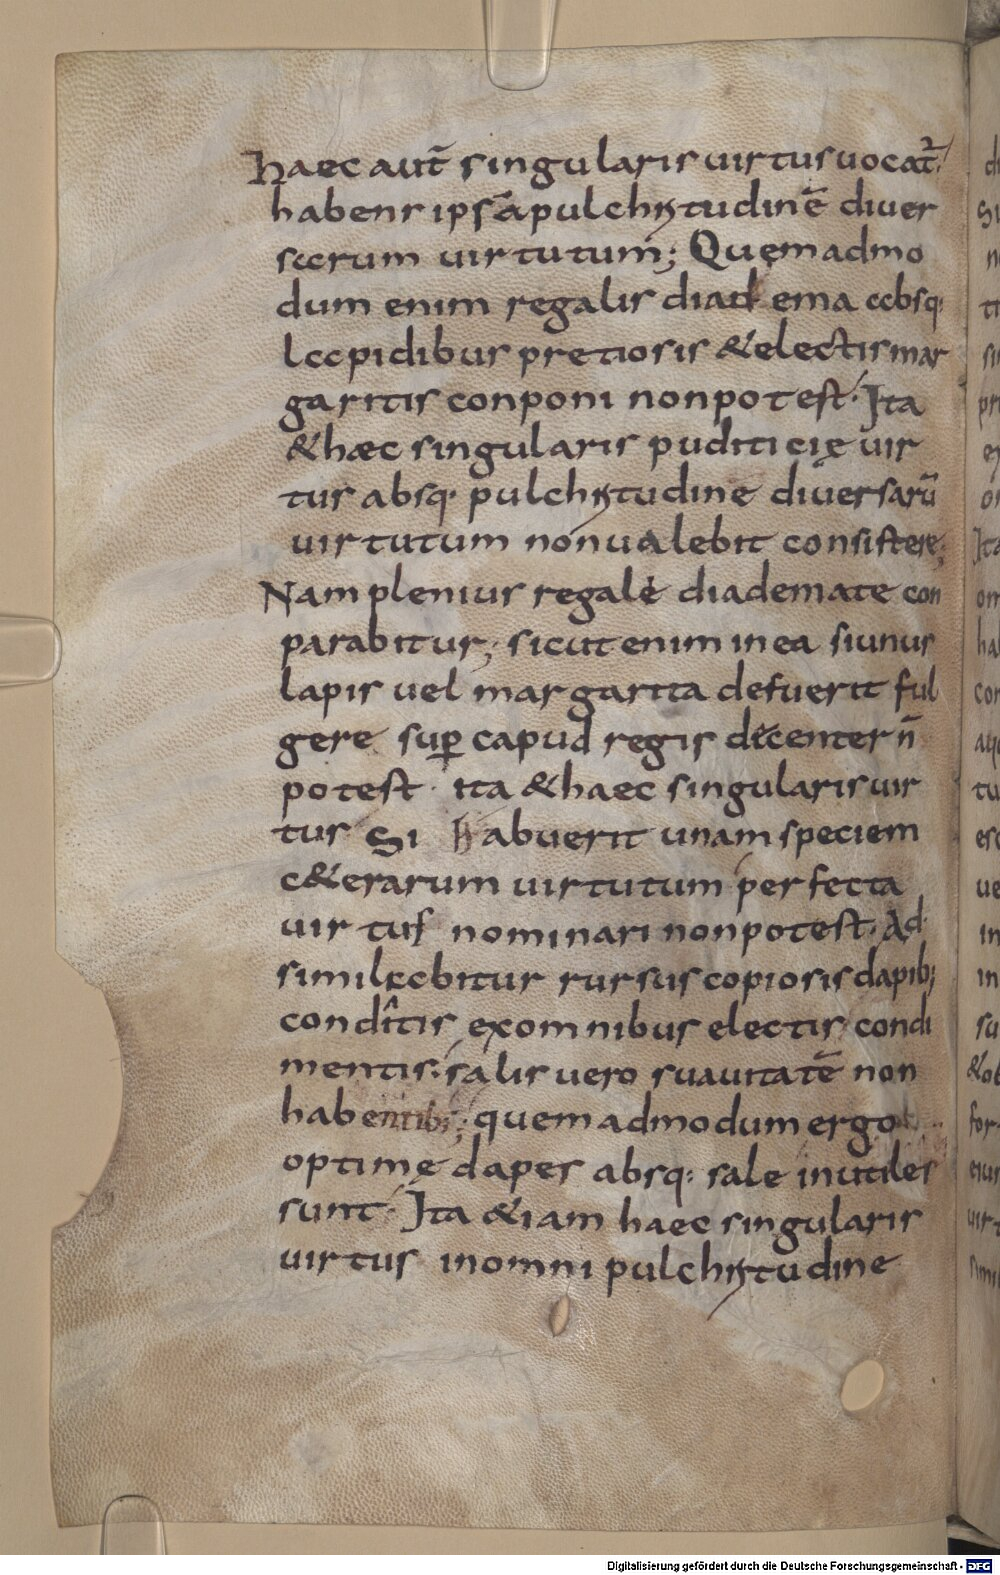 haec aut̄ singularis uirtus uocat̄:
habens ipsā pulchritudinē diuer
sarum uirtutum; Quemadmo
dum enim regalis diadema absq:
lapidibus pretiosis & electis mar
garitis conponi non potest. Ita
& hæc singularis puditicię uir
tus absq. pulchritudine diuersarū
uirtutum non ualebit consistere;
Nam plenius regale diademate con
parabitur; sicut enim in ea si unus
lapis uel margarita defuerit ful
gere sup̄ capud regis dicenter n̄
potest. ita & haec singularis uir
tus Si habuerit unam speciem
c&erarum uirtutum perfecta
uirtus nominari non potest. Ad
similabitur rursus copiosis dapib;
conditis ex omnibus electis condi
mentis. salis uero suauitatē non
habentib; quemadmodum ergo
optimę dapes absq: sale inutiles
sunt. Ita &iam haec singularis
uirtus in omni pulchritudine
Digitalisierung gefördert durch die Deutsche Forschungsgemeinschaft - DFG